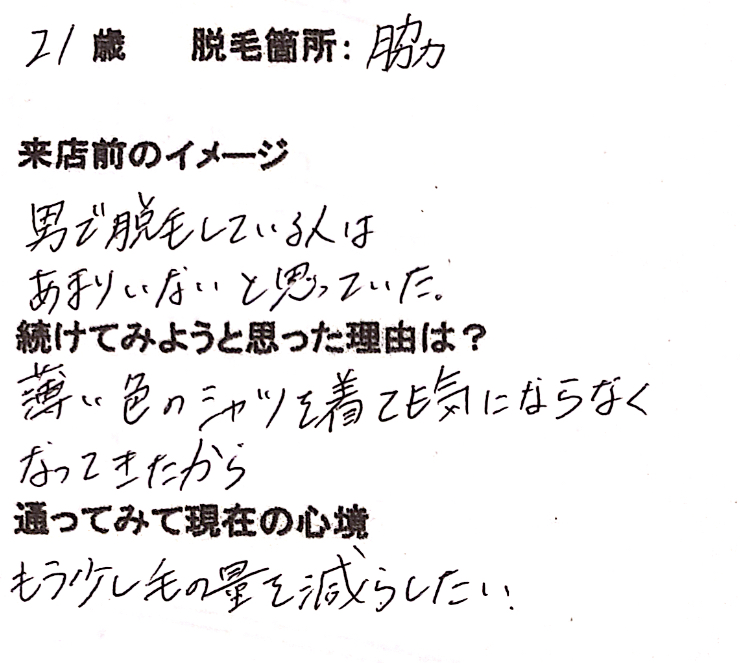 21歳 脱毛箇所：脇
来店前のイメージ
男で脱毛している人は
あまりいないと思っていた。
続けてみようと思った理由は？
薄い色のシャツを着ても気にならなく
なってきたから
通ってみて現在の心境
もう少し毛の量を減らしたい。